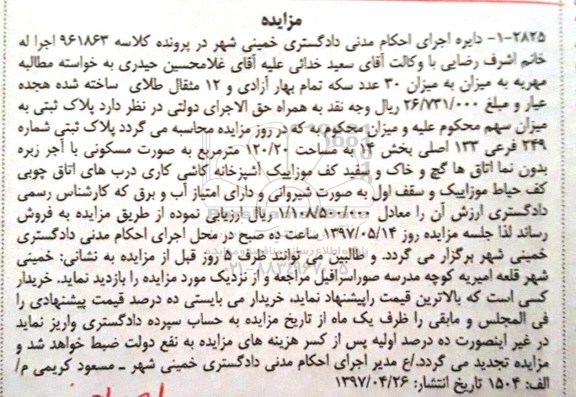 مزایده
۱-۲۸۲۵- دایره اجرای احکام مدنی دادگستری خمینی شهر در پرونده کلاسه ۹۶۱۸۶۳ اجرا له
خانم اشرف رضایی با وکالت آقای سعید خدائی علیه آقای غلامحسین حیدری به خواسته مطالبه
مهریه به میزان به میزان ۳۰ عدد سکه تمام بهار آزادی و ۱۲ مثقال طلای ساخته شده هجده
عیار و مبلغ ۲۶/۷۳۱/۰۰۰ ریال وجه نقد به همراه حق الاجرای دولتی در نظر دارد پلاک ثبتی به
میزان سهم محکوم علیه و میزان محکوم به که در روز مزایده محاسبه می گردد پلاک ثبتی شماره
۲۴۹ فرعی ۱۳۳ اصلی بخش ۱۴ به مساحت ۱۲۰/۲۰ مترمربع به صورت مسکونی با آجر زبره
بدون نما اتاق ها گچ و خاک و سفید کف موزاییک آشپزخانه کاشی کاری درب های اتاق چوبی
کف حیاط موزاییک و سقف اول به صورت شیروانی و دارای امتیاز آب و برق که کارشناس رسمی
دادگستری ارزش آن را معادل ۱/۱۰۸/۵۰۰/۰۰۰ ریال ارزیابی نموده از طریق مزایده به فروش
رساند لذا جلسه مزایده روز ۱۳۹۷/۰۵/۱۴ ساعت ده صبح در محل اجرای احکام مدنی دادگستری
خمینی شهر برگزار می گردد. و طالبین می توانند ظرف ۵ روز قبل از مزایده به نشانی: خمینی
شهر قلعه امیریه کوچه مدرسه صوراسرافیل مراجعه و از نزدیک مورد مزایده را بازدید نماید. خریدار
کسی است که بالاترین قیمت راپیشنهاد نماید، خریدار می بایستی ده درصد قیمت پیشنهادی را
فی المجلس و مابقی را ظرف یک ماه از تاریخ مزایده به حساب سپرده دادگستری واریز نماید
در غیر اینصورت ده درصد اولیه پس از کسر هزینه های مزایده به نفع دولت ضبط خواهد شد و
مزایده تجدید می گردد./ع مدیر اجرای احکام مدنی دادگستری خمینی شهر ـ مسعود کریمی م/
الف: ۱۵۰۴ تاریخ انتشار: ۱۳۹۷/۰۴/۲۶